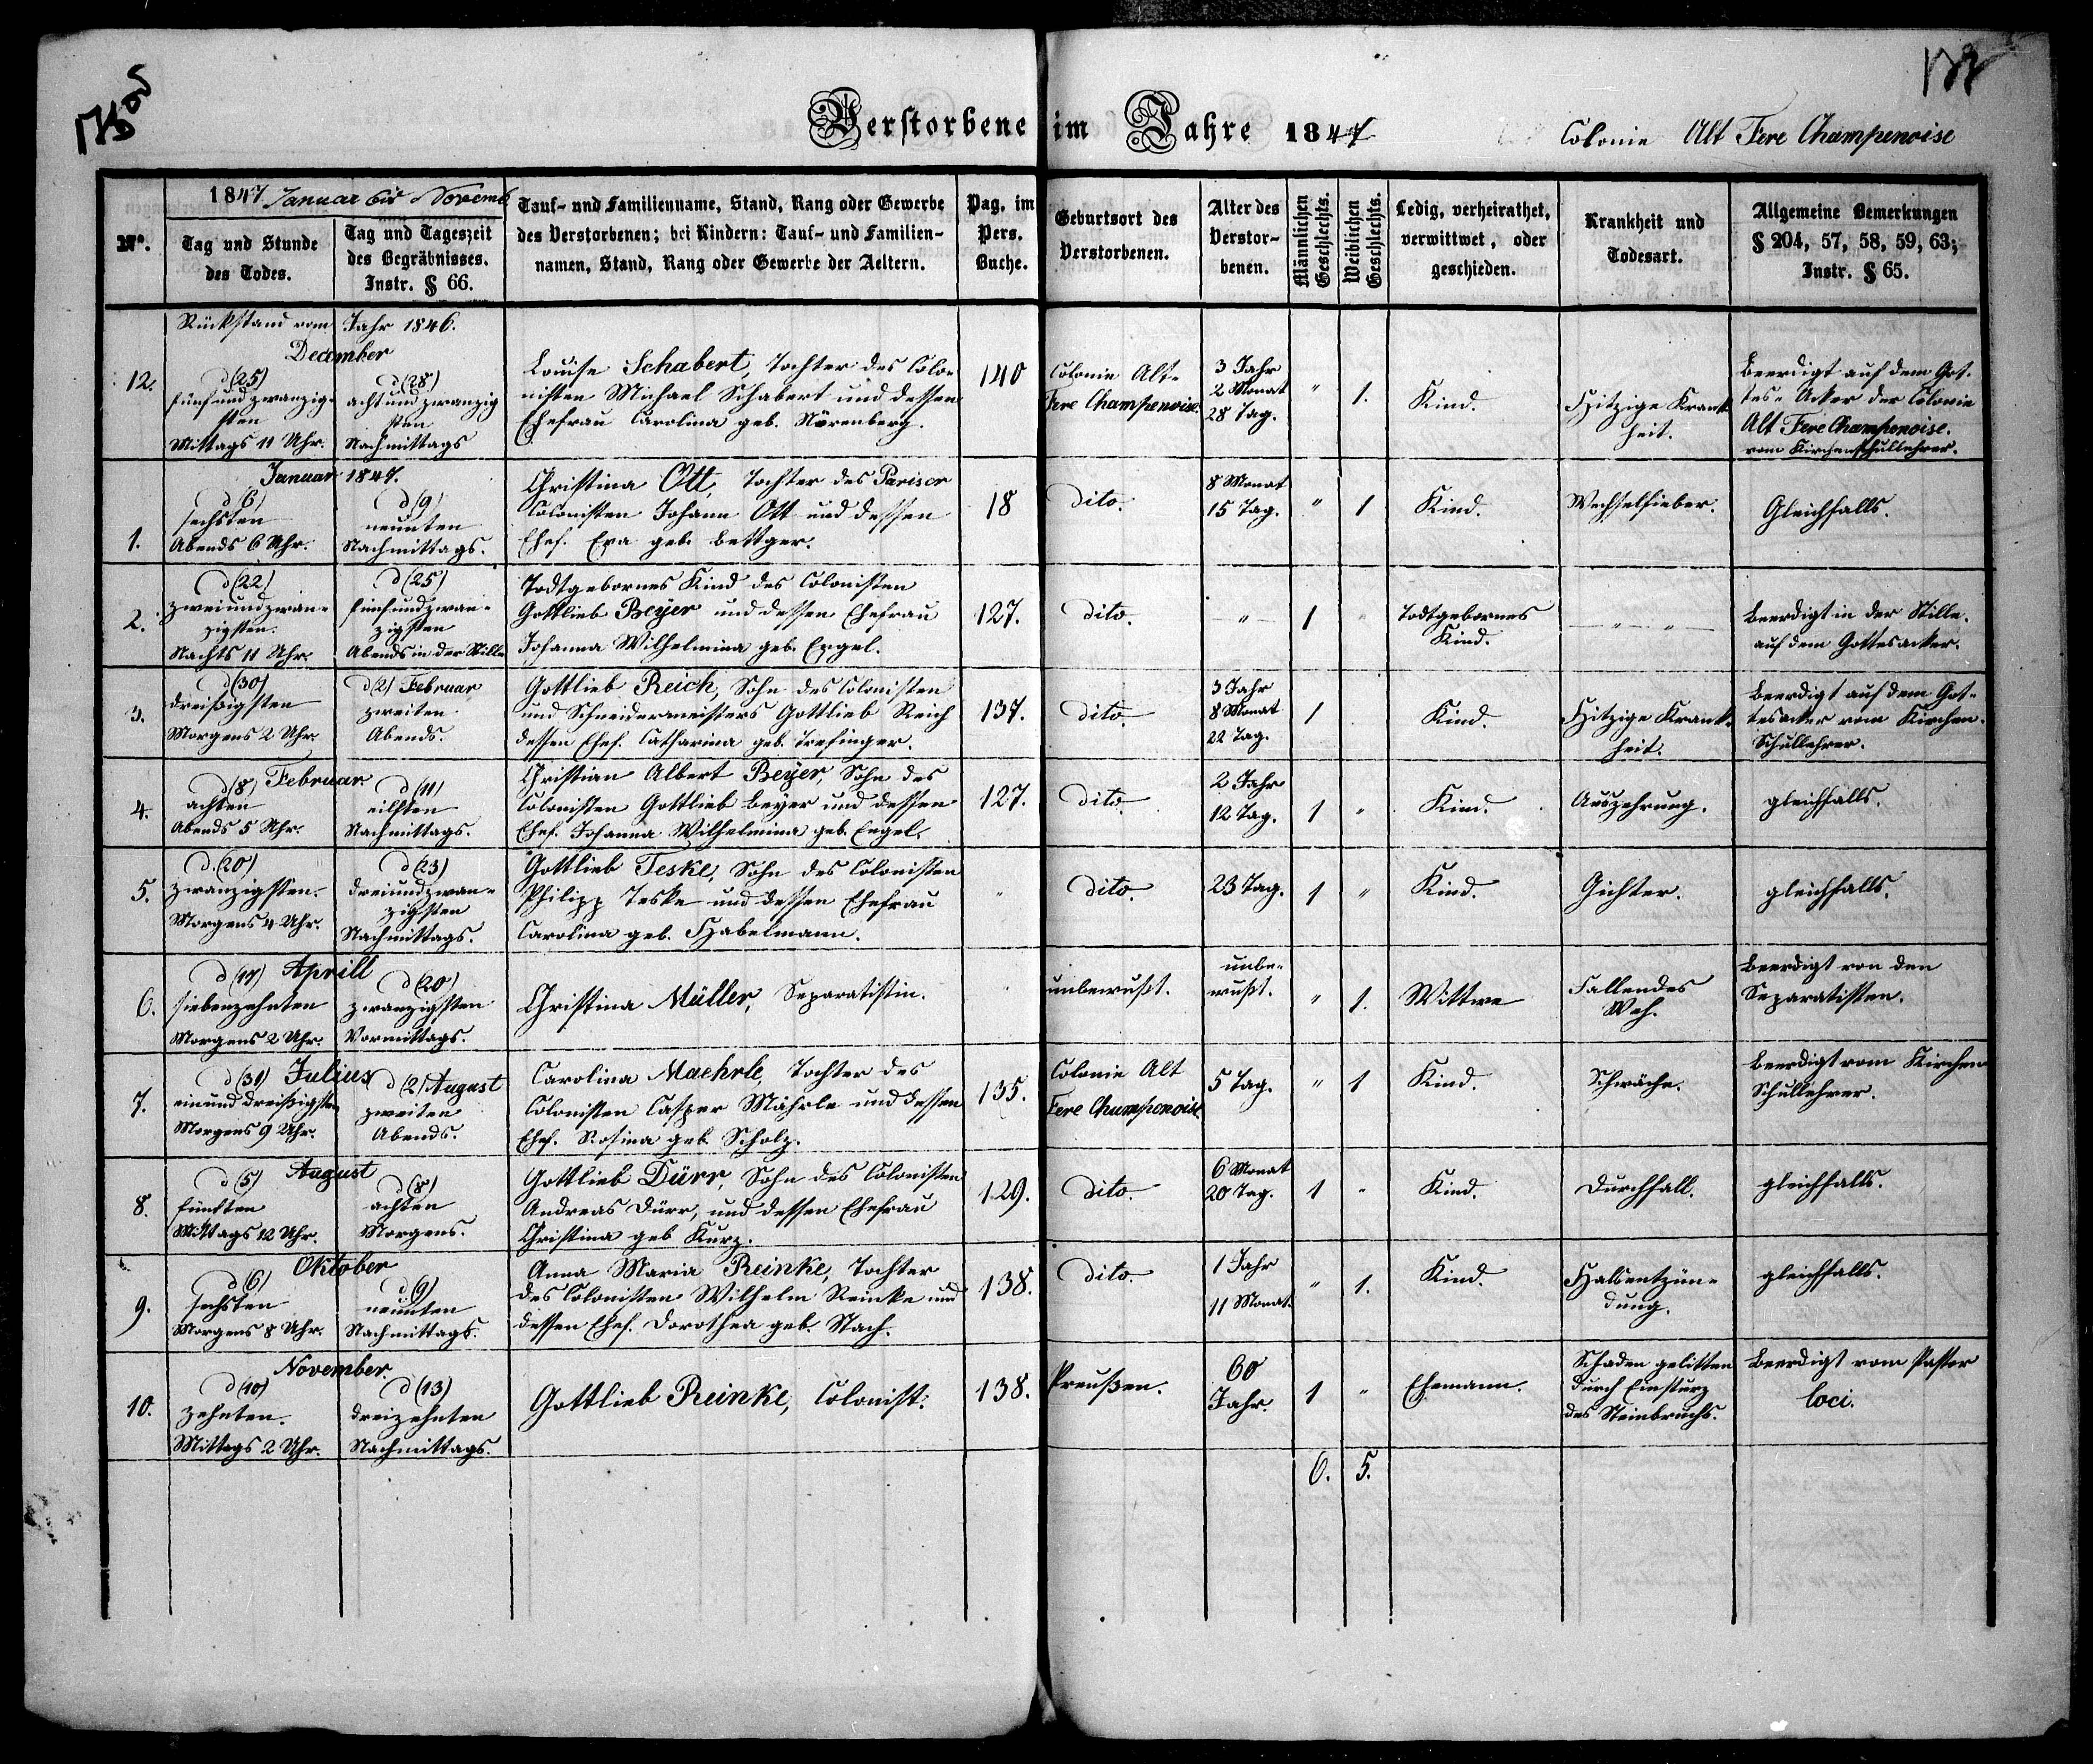 Verstorbene im Jahre 1847
Colonie Alt Fere Champenoise
No.
1847 Januar bis Novemb
Tag und Stunde
des Todes.
Tag und Tageszeit
des Begräbnisses.
Instr. § 66.
Tauf- und Familienname, Stand, Rang oder Gewerbe
des Verstorbenen; bei Kindern: Tauf- und Familien-
namen, Stand, Rang oder Gewerbe der Aeltern.
Pag. im
Pers.
Buche.
Geburtsort des
Verstorbenen.
Alter des
Verstor-
benen.
Männlichen
Geschlechts.
Weiblichen
Geschlechts.
Ledig, verheirathet,
verwittwet, oder
geschieden.
Krankheit und
Todesart.
Allgemeine Bemerkungen
§ 204, 57, 58, 59, 63;
Instr. § 65.
Rückstand vom Jahr 1846.
December
12.
d (25)
fünfundzwanzig-
sten
Mittags 11 Uhr.
d (28)
achtundzwanzig
sten
Nachmittags
Louise Schabert, Tochter des Colo-
nisten Michael Schabert und dessen
Ehefrau Carolina geb. Nörenberg.
140
Colonie Alt-
Fere Champenoise.
3 Jahr
2 Monat
28 Tag.
"
1.
Kind.
Hitzige Krank-
heit.
Beerdigt auf dem Got-
tes-Acker der Colonie
Alt Fere Champenoise.
vom Kirchenschullehrer.
Januar 1847.
1.
d (6)
sechsten
Abends 6 Uhr.
d (9)
neunten
Nachmittags.
Christina Ott, Tochter des Pariser
Colonisten Johann Ott und dessen
Ehef. Eva geb. Bettger.
18
dito.
8 Monat
15 Tag.
"
1
Kind.
Wechselfieber.
Gleichfalls.
2.
d (22)
zweiundzwan-
zigsten.
Nachts 11 Uhr.
d (25)
fünfundzwan-
zigsten
Abends in der Stille
Todtgebornes Kind des Colonisten
Gottlieb Beyer und dessen Ehefrau
Johanna Wilhelmina geb. Engel.
127.
dito.
"
1
"
Todtgebornes
Kind.
" "
Beerdigt in der Stille.
auf dem Gottesacker.
3.
d (30)
dreißigsten
Morgens 2 Uhr.
d (2) Februar
zweiten
Abends.
Gottlieb Reich, Sohn des Colonisten
und Schneidermeisters Gottlieb Reich
dessen Ehef. Catharina geb. Trefinger.
137.
dito.
3 Jahr
8 Monat
22 Tag.
1
Kind.
Hitzige Krank-
heit.
Beerdigt auf dem Got-
tesacker vom Kirchen-
Schullehrer.
4.
d (8) Februar
achten
Abends 5 Uhr.
d (11)
eilften
Nachmittags.
Christian Albert Beyer, Sohn des
Colonisten Gottlieb Beyer und dessen
Ehef. Johanna Wilhelmina geb. Engel.
127.
dito
2 Jahr
12 Tag.
1
"
Kind.
Auszehrung.
gleichfalls.
5.
d. (20)
zwanzigsten.
Morgens 4 Uhr.
d (23)
dreiundzwan-
zigsten
Nachmittags.
Gottlieb Teske, Sohn des Colonisten
Philipp Teske und dessen Ehefrau
Carolina geb. Habelmann.
"
dito.
23 Tag.
1
"
Kind.
Gichter.
gleichfalls.
6.
d (17) Aprill
siebenzehnten
Morgens 2 Uhr.
d (20)
zwanzigsten
Vormittags.
Christina Müller, Separatistin.
unbewußt.
unbe-
wußt.
"
1.
Wittwe
Fallendes
Weh.
Beerdigt von den
Separatisten.
7.
d (31) Julius
einunddreißigsten
Morgens 9 Uhr.
d (2) August
zweiten
Abends.
Carolina Maehrle, Tochter des
Colonisten Casper Mährle und dessen
Ehef. Rosina geb. Scholz.
135.
Colonie Alt
Fere Champenoise.
5 Tag.
"
1
Kind.
Schwäche.
Beerdigt vom Kirchen
Schullehrer.
8.
d (5) August
fünften
Mittags 12 Uhr.
d (8)
achten
Morgens.
Gottlieb Dürr, Sohn des Colonisten
Andreas Dürr, und dessen Ehefrau
Christina geb Kurz.
129.
dito.
6 Monat
20 Tag.
1
"
Kind.
Durchfall.
gleichfalls.
Oktober
9.
d (6)
sechsten
Morgens 8 Uhr.
d. (9)
neunten
Nachmittags.
Anna Maria Reinke, Tochter
des Colonisten Wilhelm Reinke und
dessen Ehef. Dorothea geb. Stach.
138.
dito
1 Jahr
11 Monat.
"
1.
Kind.
Halsentzün-
dung.
gleichfalls.
November.
10.
d (10)
zehnten.
Mittags 2 Uhr.
d (13)
dreizehnten
Nachmittags.
Gottlieb Reinke, Colonist.
138.
Preußen.
60
Jahr.
1
"
Ehemann.
Schaden gelitten
durch Einsturz
des Steinbruchs.
Beerdigt vom Pastor
loci.
6.
5.